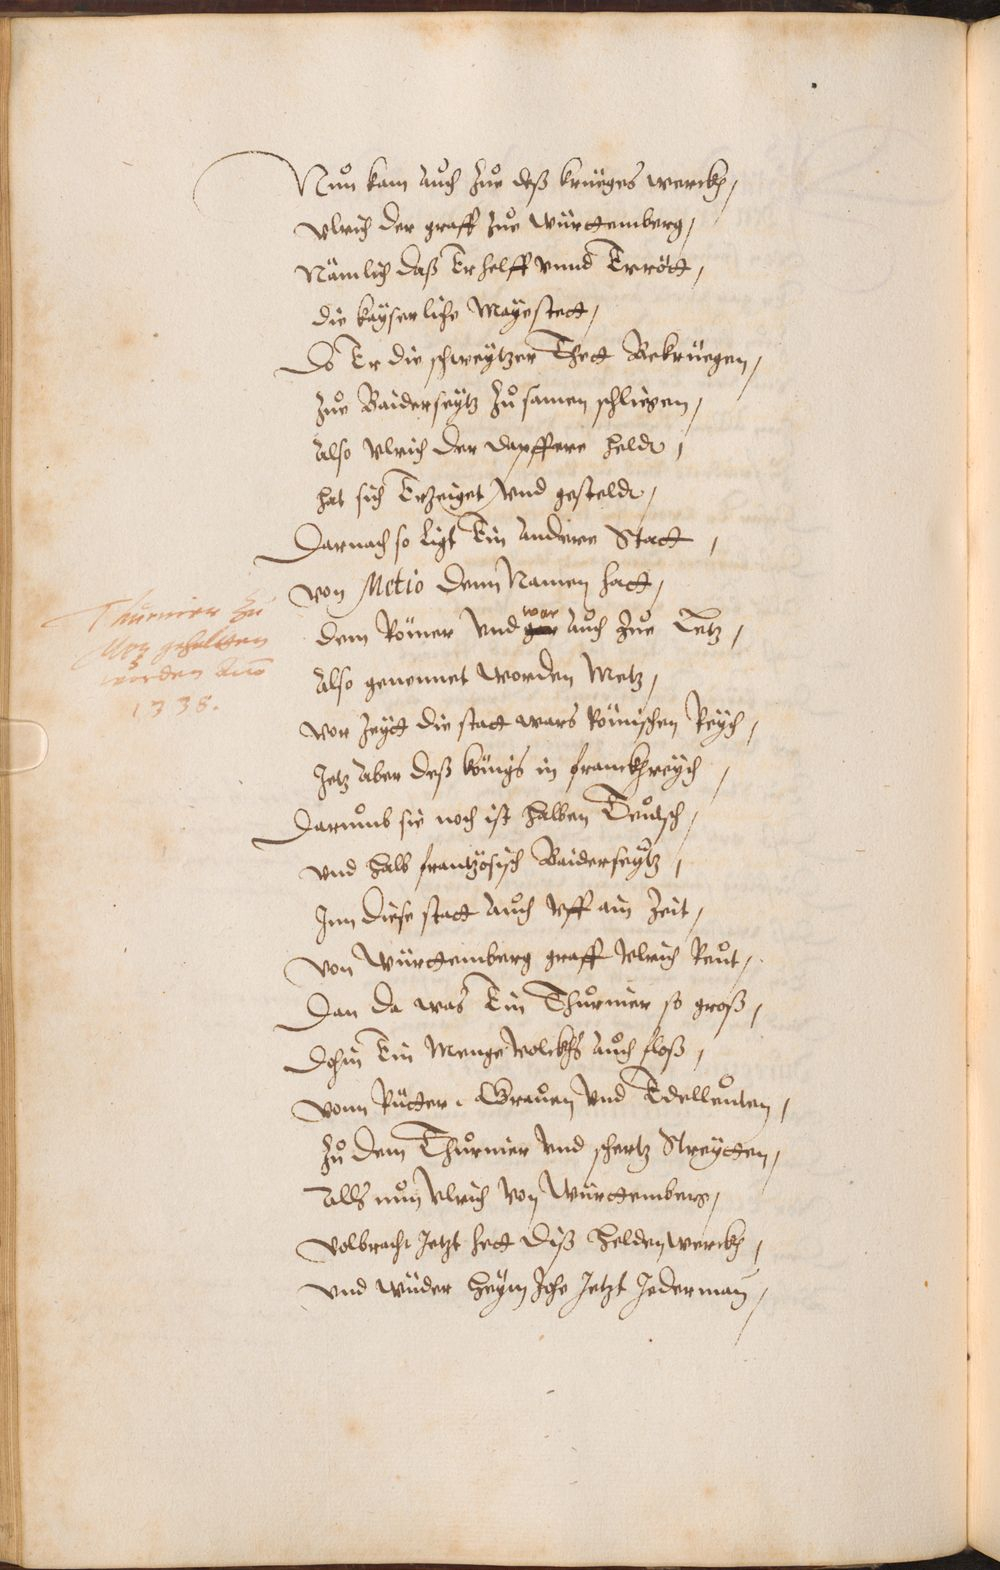 Nůn kam Aůch Zůe deß krüeges werckh,
Ulrich der graff Zůe Württemberg,
Nämlich daß Er helff vnnd Errött,
die kayserliche Mayestett,
Do Er die schweytzer Thett Bekrüegen,
Zůe Baiderseytz Zůsamen schliegen,
Also Ulrich der dapffere heldt,
hat sich Erzeiget vnd gesteldt,
Darnach so ligt Ein Andere Statt,
von Metio denn Namen hatt,
dem Römer vnd war Aůch Zůe Letz,
Also genennet worden Metz,
vor Zeytt die statt wars Römischen Reych,
Jetz Aber deß königs in franckhreych,
Darumb sie noch ist halben Teütsch,
vnd halb frantzösisch Baiderseytz,
Inn diese statt Aůch vff ain Zeit,
von Württemberg graff Ulrich Reůt,
Dan da was Ein Thůrnier so groß,
Dohin Ein Menge volckhs Aůch floß,
vonn Rütter, Graůen vnd Edelleůten,
Zů dem Thůrnier vnd schertz Streytten,
Alls nůn Ulrich von Württemberg,
volbracht Jetzt hett diß heldenwerckh,
vnd wüder heym Zohe Jetzt Jederman,
Thurnier Zu
Metz gehaltten
worden Anno
1338.